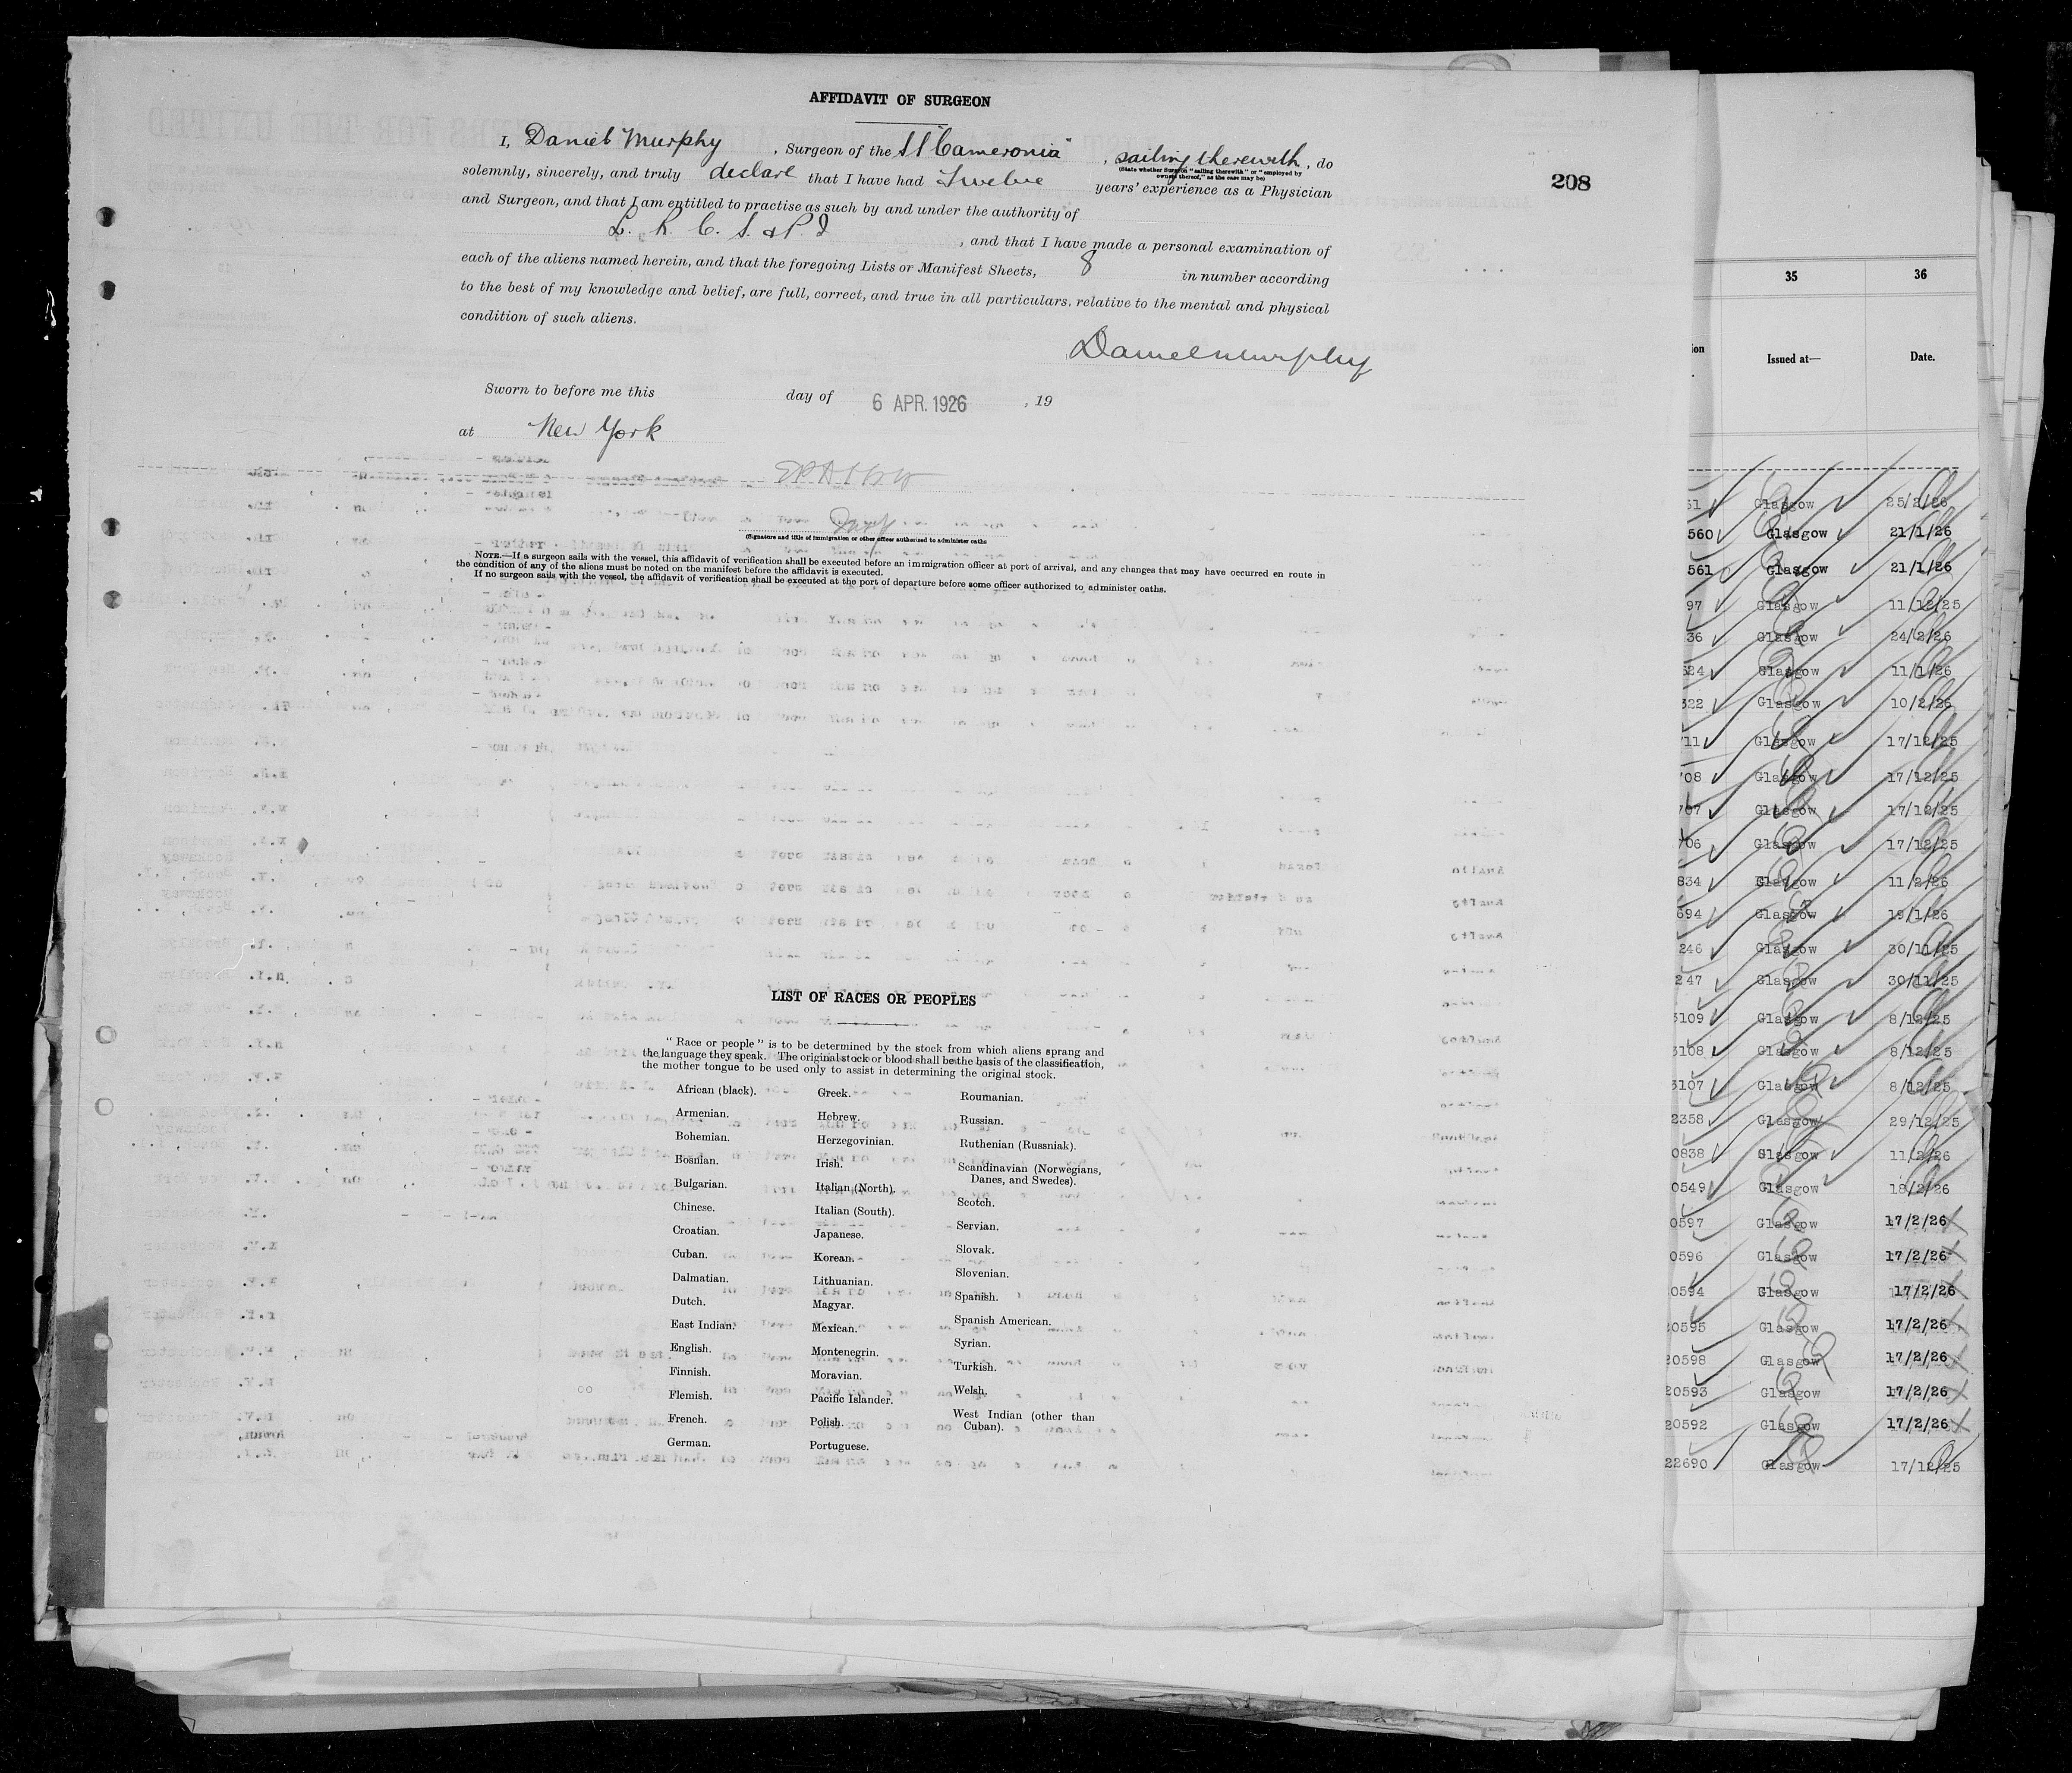 AFFIDAVIT OF SURGEON
I, Daniel Murphy, Surgeon of the SS "Cameronia", sailing therewith, do
(State whether Surgeon "sailing therewith" or "employed by
owners thereof," as the case may be)
solemnly, sincerely, and truly declare that I have had Twelve years' experience as a Physician
and Surgeon, and that I am entitled to practise as such by and under the authority of
L. R. C. S. & P. I , and that I have made a personal examination of
each of the aliens named herein, and that the foregoing Lists or Manifest Sheets, 8 in number according
to the best of my knowledge and belief, are full, correct, and true in all particulars, relative to the mental and physical
condition of such aliens.
Daniel Murphy
Sworn to before me this day of 6 APR. 1926, 19
at New York
(Signature and title of immigration or other officer authorized to administer oaths
NOTE.—If a surgeon sails with the vessel, this affidavit of verification shall be executed before an immigration officer at port of arrival, and any changes that may have occurred en route in
the condition of any of the aliens must be noted on the manifest before the affidavit is executed.
If no surgeon sails with the vessel, the affidavit of verification shall be executed at the port of departure before some officer authorized to administer oaths.
LIST OF RACES OR PEOPLES
"Race or people" is to be determined by the stock from which aliens sprang and
the language they speak. The original stock or blood shall be the basis of the classification,
the mother tongue to be used only to assist in determining the original stock.
African (black).
Armenian.
Bohemian.
Bosnian.
Bulgarian.
Chinese.
Croatian.
Cuban.
Dalmatian.
Dutch.
East Indian.
English.
Finnish.
Flemish.
French.
German.
Greek.
Hebrew.
Herzegovinian.
Irish.
Italian (North).
Italian (South).
Japanese.
Korean.
Lithuanian.
Magyar.
Mexican.
Montenegrin.
Moravian.
Pacific Islander.
Polish.
Portuguese.
Roumanian.
Russian.
Ruthenian (Russniak).
Scandinavian (Norwegians,
Danes, and Swedes).
Scotch.
Servian.
Slovak.
Slovenian.
Spanish.
Spanish American.
Syrian.
Turkish.
Welsh.
West Indian (other than
Cuban).
208
35 36
Issued at— Date.
51 Glasgow 25/2/26
560 Glasgow 21/1/26
561 Glasgow 21/1/26
97 Glasgow 11/12/25
36 Glasgow 24/2/26
524 Glasgow 11/1/26
322 Glasgow 10/2/26
711 Glasgow 17/12/25
708 Glasgow 17/12/25
707 Glasgow 17/12/25
706 Glasgow 17/12/25
834 Glasgow 11/2/26
694 Glasgow 19/1/26
246 Glasgow 30/11/25
247 Glasgow 30/11/25
3109 Glasgow 8/12/25
3108 Glasgow 8/12/25
3107 Glasgow 8/12/25
2358 Glasgow 29/12/25
0838 Glasgow 11/2/26
0549 Glasgow 18/2/26
0597 Glasgow 17/2/26
0596 Glasgow 17/2/26
0594 Glasgow 17/2/26
20595 Glasgow 17/2/26
20598 Glasgow 17/2/26
20593 Glasgow 17/2/26
20592 Glasgow 17/2/26
22690 Glasgow 17/12/25